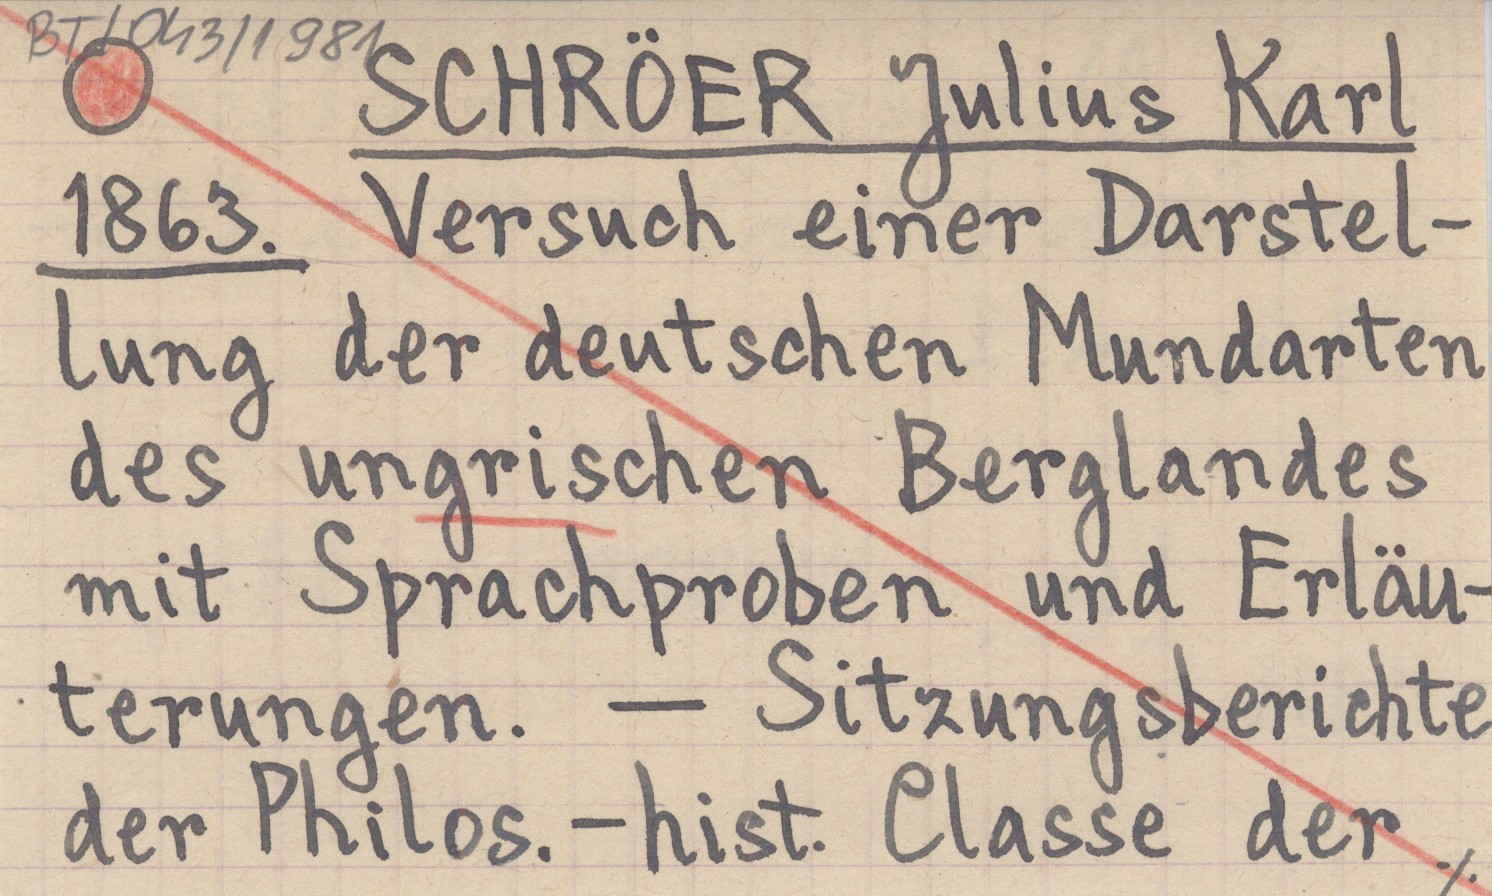 BT/043/1981
SCHRÖER Julius Karl
1863. Versuch einer Darstel-
lung der deutschen Mundarten
des ungrischen Berglandes
mit Sprachproben und Erläu-
terungen. — Sitzungsberichte
der Philos.-hist. Classe der ./.